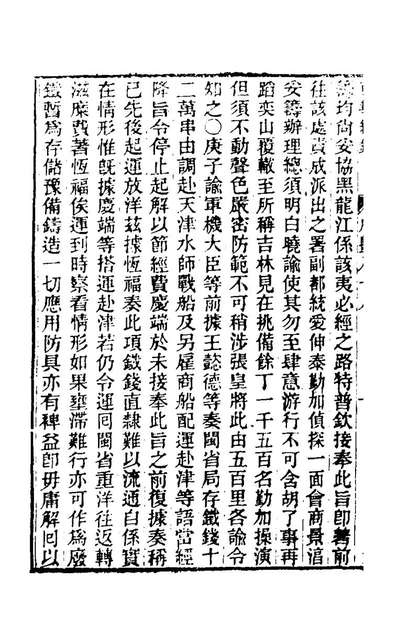 均尙妥協黑龍江係該夷必經之路特普欽接奉此旨卽著前
往該處責成派出之署副都統愛伸泰勤加偵探一面會商景淳
妥籌辦理總須明白曉諭使其勿至肆意游行不可含胡了事再
蹈奕山覆轍至所稱吉林見在挑備餘丁一千五百名勤加操演
但須不動聲色嚴密防範不可稍涉張皇將此由五百里各諭令
知之〇庚子諭軍機大臣等前據王懿德等奏閩省局存鐵錢十
二萬串由調赴天津水師戰船及另雇商船配運赴津等語當經
降旨令停止起解以節經費慶端於未接奉此旨之前復據奏稱
已先後起運放洋茲據恆福奏此項鐵錢直隸難以流通自係實
在情形惟旣據慶端等搭運赴津若仍令運囘閩省重洋往返轉
滋糜費著恆福俟運到時察看情形如果壅滯難行亦可作爲廢
鐵暫爲存儲豫備鑄造一切應用防具亦有裨益卽毋庸解囘以